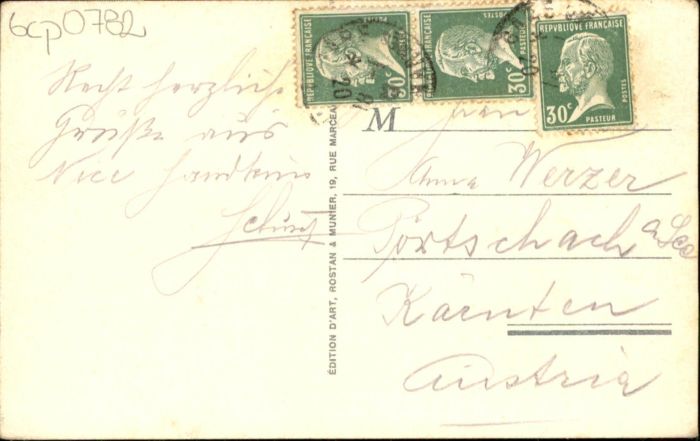 bcp0782
Recht herzliche
Grüße aus
Nice
RÉPUBLIQUE FRANÇAISE
30c
POSTES
PASTEUR
RÉPUBLIQUE FRANÇAISE
30c
POSTES
PASTEUR
RÉPUBLIQUE FRANÇAISE
30c
POSTES
PASTEUR
M
Frau
Anna Werzer
Pörtschach a See
Kärnten
Austria
ÉDITION D'ART, ROSTAN & MUNIER, 19, RUE MARCEAU